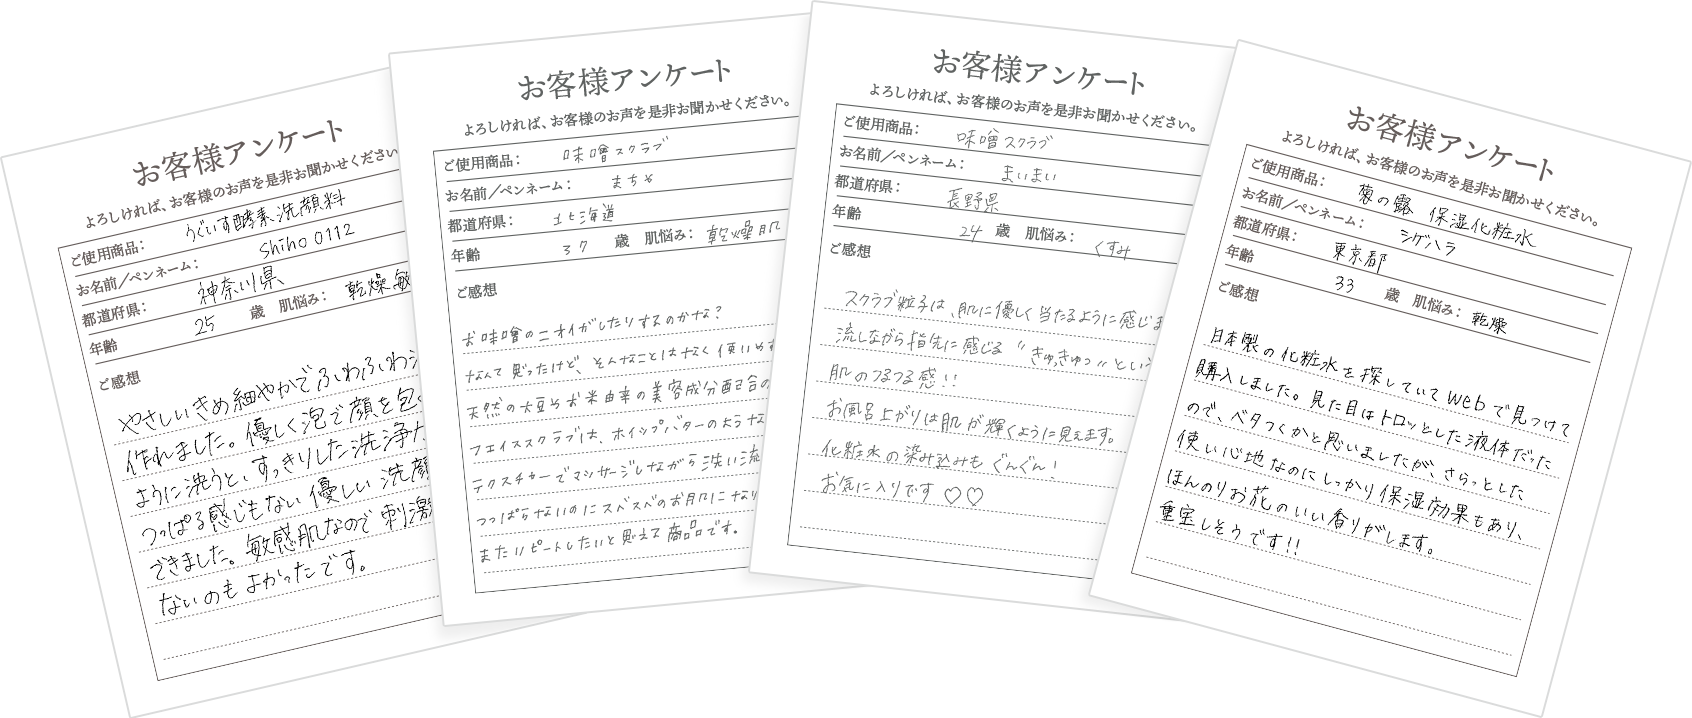 お客様アンケート
よろしければ、お客様のお声を是非お聞かせください
ご使用商品： うぐいす酵素洗顔料
お名前／ペンネーム： Shiho 0112
都道府県： 神奈川県
年齢 25 歳 肌悩み： 乾燥 敏
ご感想
やさしいきめ細やかでふわふわ
作れました。優しく泡で顔を包
ように洗うと、すっきりした洗浄
つっぱる感じもない優しい洗顔
できました。敏感肌なので刺激
ないのもよかったです。
お客様アンケート
よろしければ、お客様のお声を是非お聞かせください。
ご使用商品： 味噌スクラブ
お名前／ペンネーム： まちゃ
都道府県： 北海道
年齢 37 歳 肌悩み： 乾燥肌
ご感想
お味噌のニオイがしたりするのかな？
なんて思ったけど、そんなことはなく使いやす
天然の大豆やお米由来の美容成分配合の
フェイススクラブは、ホイップバターのような
テクスチャーでマッサージしながら洗い流
つっぱらないのにスベスベのお肌になり
またリピートしたいと思えて商品です。
お客様アンケート
よろしければ、お客様のお声を是非お聞かせください。
ご使用商品： 味噌スクラブ
お名前／ペンネーム： まいまい
都道府県： 長野県
年齢 24 歳 肌悩み： くすみ
ご感想
スクラブ粒子は、肌に優しく当たるように感じま
流しながら指先に感じる “きゅきゅっ”とい
肌のつるつる感！！
お風呂上がりは肌が輝くように見えます。
化粧水の染み込みもぐんぐん！
お気に入りです♡♡
お客様アンケート
よろしければ、お客様のお声を是非お聞かせください。
ご使用商品： 菊の露 保湿化粧水
お名前／ペンネーム： シゲハラ
都道府県： 東京都
年齢 33 歳 肌悩み： 乾燥
ご感想
日本製の化粧水を探していてwebで見つけて
購入しました。見た目はトロッとした液体だった
ので、ベタつくかと思いましたが、さらっとした
使い心地なのにしっかり保湿効果もあり、
ほんのりお花のいい香りがします。
重宝しそうです！！